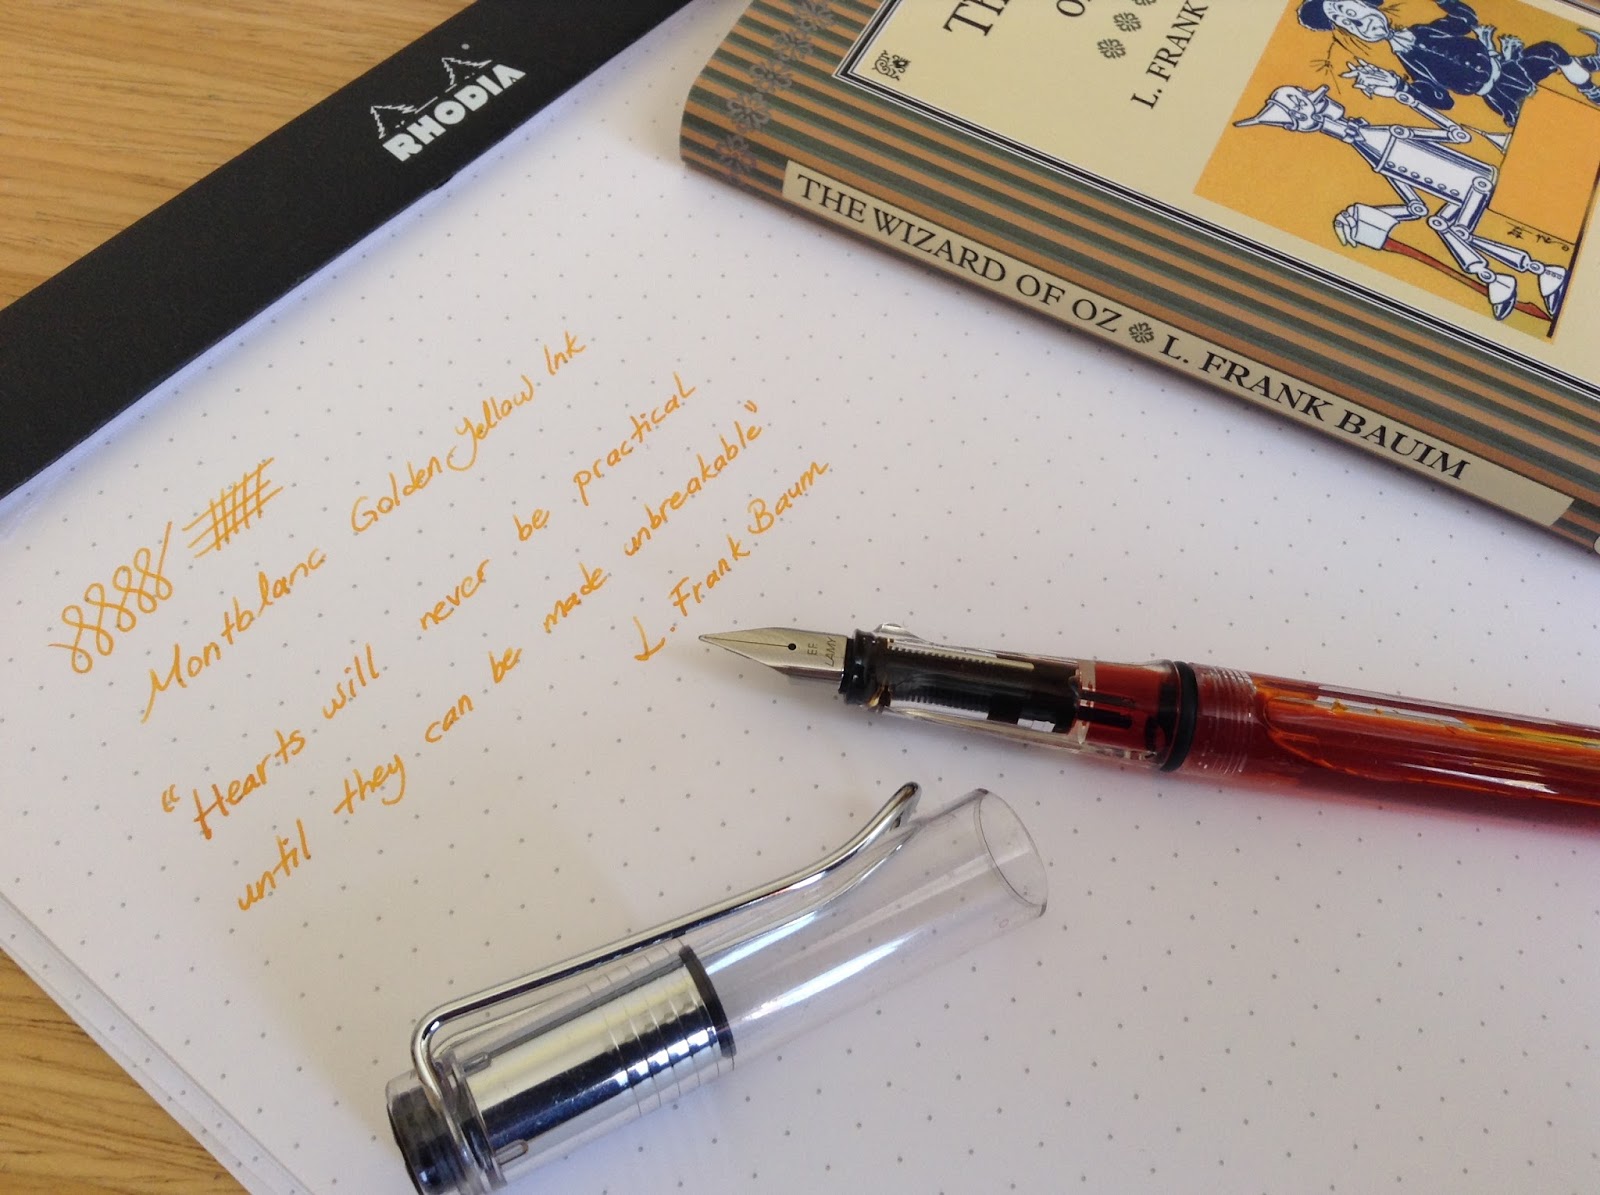 RHODIA
Montblanc Golden Yellow Ink
"Hearts will never be practical
until they can be made unbreakable"
L. Frank Baum
L. FRANK
THE WIZARD OF OZ L. FRANK BAUIM
EF
LAMY